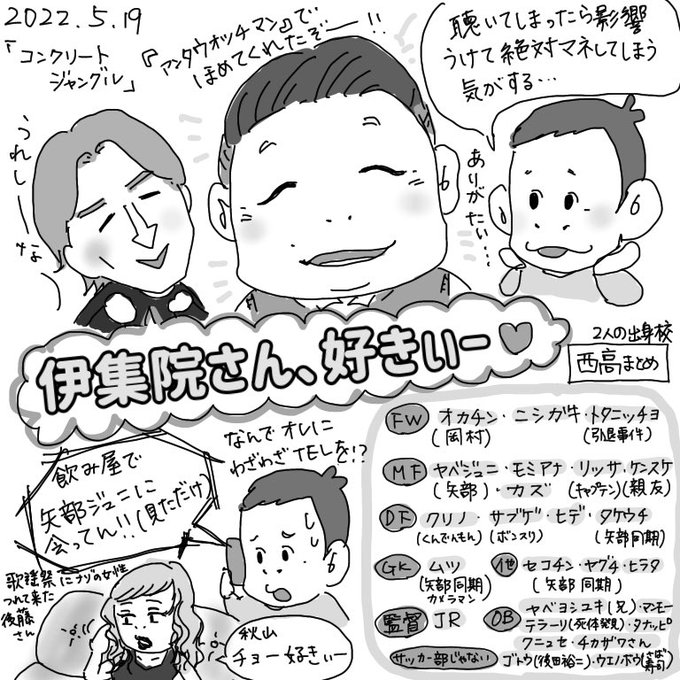 2022.5.19
「コンクリート
ジャングル」
『アンタウオッチマン』で
ほめてくれたぞ――!
聴いてしまったら影響
うけて絶対マネしてしまう
気がする…
うれしーな
ありがたい…
伊集院さん、好きぃー♡
2人の出身校
西高まとめ
FW オカチン・ニシガキ・トタニッチョ
(岡村) (引退事件)
MF ヤベジュニ・モミアナ・リッサ・ケンスケ
(矢部)・カズ (キャプテン)(親友)
DF クリノ・サブゲ・ヒデ・タケウチ
(くんでんもん)(ポンスリ) (矢部同期)
GK ムツ
(矢部同期)
カメラマン
他 セコチン・ヤグチ・ヒラタ
(矢部同期)
監督 JR
OB ヤベヨシユキ(兄)・マンモー
テラーリ(死体発見)・タナッピ
クニュセ・チカザワさん
サッカー部じゃない ゴトウ(後田裕二)・ウエノボウ(さば寿司)
なんでオレに
わざわざTELを!?
飲み屋で
矢部ジュニに
会ってん!!(見ただけ)
歌謡祭にナゾの女性
つれて来た
後藤
さん
秋山
チョー好きぃー